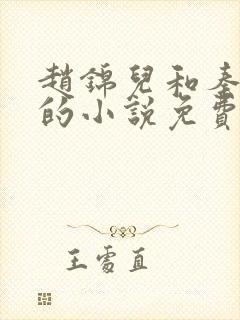 趙錦兒和秦
的小說免費
王處直